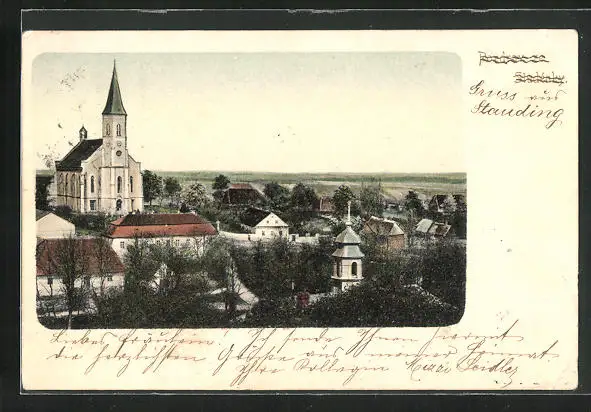 Gruss aus
Stauding
Liebes Fräulein! Ich sende Ihnen hiermit
die herzlichsten Grüsse aus meiner Heimat
Ihre Kollegin